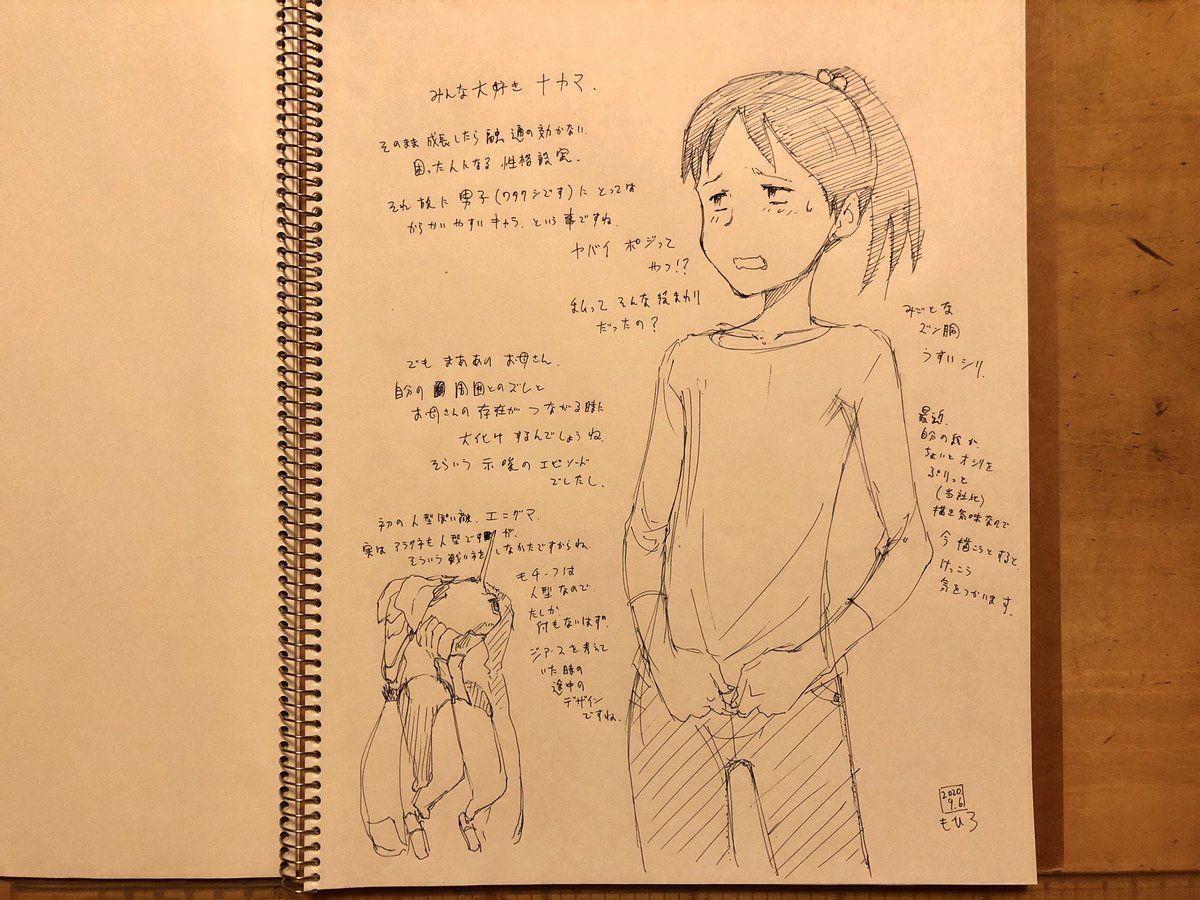 みんな大好き ナカマ.
そのまま 成長したら 融通の効かない.
困った人になる 性格設定.
それ故に 男子(ワタクシです)に とっては
からかいやすい キャラ. という 事ですね.
ヤバイ ポジって
やつ!?
私って そんな役まわり
だったの?
でも まああの お母さん.
自分の 周囲とのズレと
お母さんの 存在が つながる時に
大化け するんでしょうね.
そういう 示唆の エピソード
でしたし.
初の 人型ぽい敵. エニグマ.
実は アラクネも 人型ですが.
そういう 戦い をしなかたですからね.
モチーフは
人型なので
たしか
何もないはず.
ジアースを考えて
いた時の
途中の
デザイン
ですね.
みごとな
ズン胴
うすいシリ.
最近.
自分の絵が.
ちょいとオシリを
ぷりっと
(当社比)
描き気味なので
今 描こうとすると.
けっこう
気をつかいます.
2020
9.6
もひろ